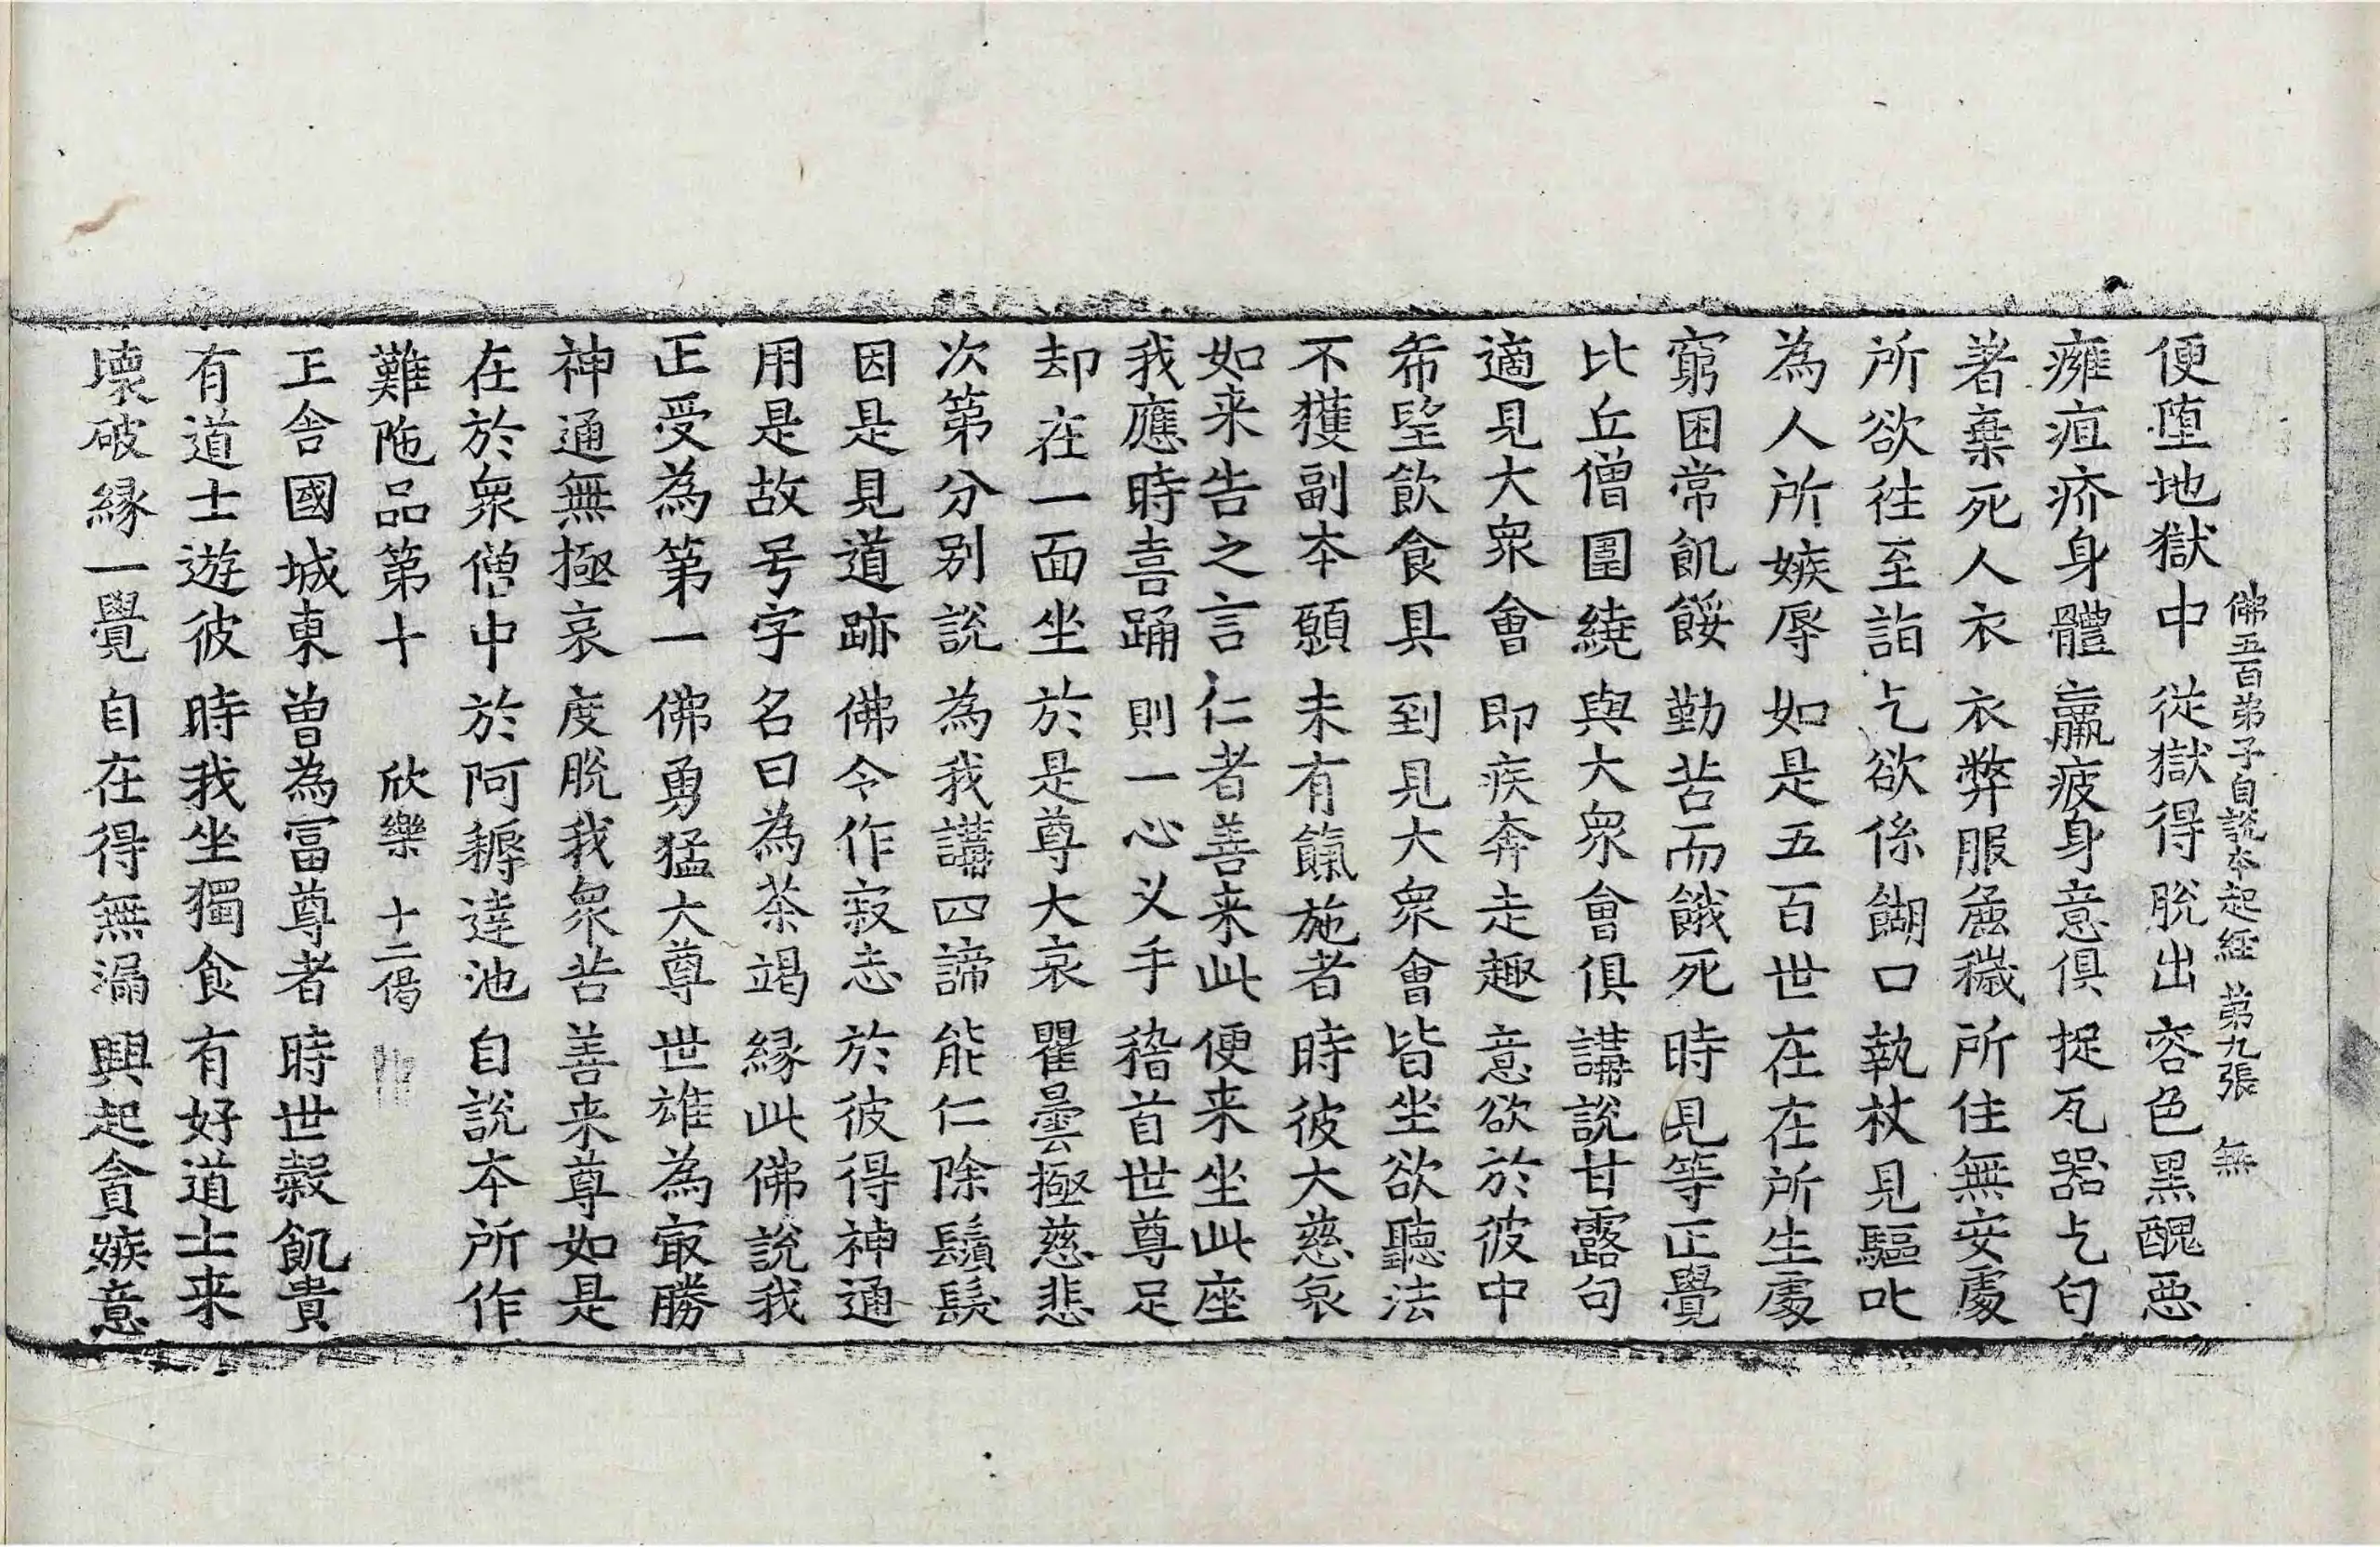 佛五百弟子自說本起經 第九張 無
便墮地獄中 從獄得脫出 容色黑醜惡
癰疽疥身體 羸疲身意俱 捉瓦器乞匃
著棄死人衣 衣弊服麁穢 所住無安處
所欲往至詣 乞欲係餬口 執杖見驅叱
為人所嫉辱 如是五百世 在在所生處
窮困常飢餒 勤苦而餓死 時見等正覺
比丘僧圍繞 與大衆會俱 講說甘露句
適見大衆會 即疾奔走趣 意欲於彼中
希望飲食具 到見大衆會 皆坐欲聽法
不獲副本願 未有餼施者 時彼大慈哀
如来告之言 仁者善来此 便来坐此座
我應時喜踊 則一心义手 稽首世尊足
却在一面坐 於是尊大哀 瞿曇極慈悲
次第分别說 為我講四諦 能仁除鬚髮
因是見道跡 佛令作寂志 於彼得神通
用是故号字 名曰為茶竭 緣此佛說我
正受為第一 佛勇猛大尊 世雄為㝡勝
神通無極哀 度脫我衆苦 善来尊如是
在於衆僧中 於阿耨達池 自說本所作
難陁品第十 欣樂 十二偈
王舍國城東 曾為冨尊者 時世穀飢貴
有道士遊彼 時我坐獨食 有好道士来
壞破緣一覺 自在得無漏 興起貪嫉意